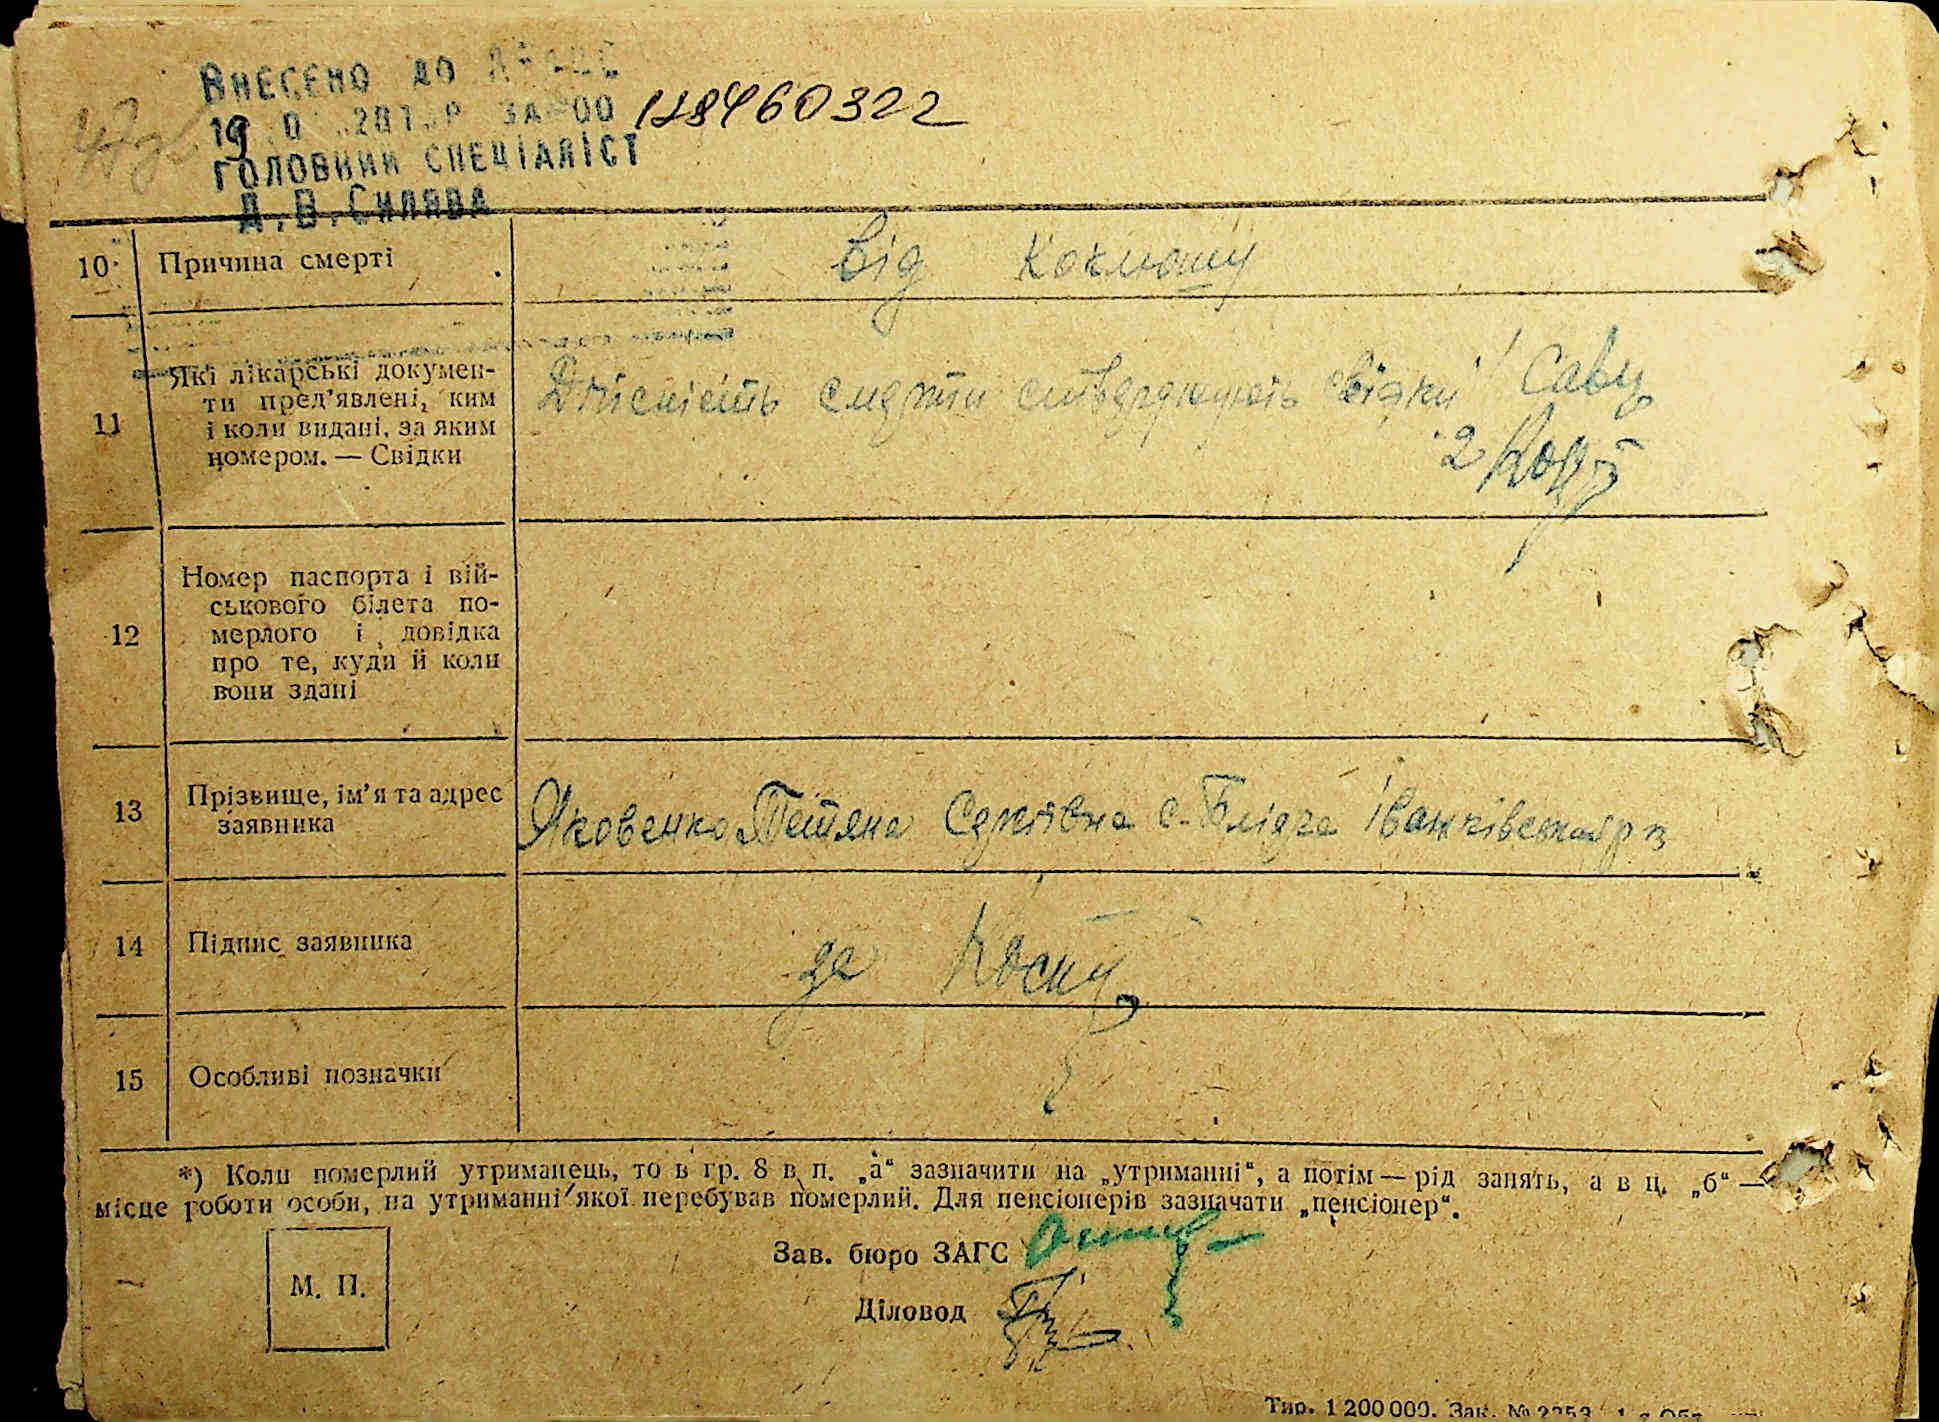 ВНЕСЕНО ДО
ЗА 00 128460322
ГОЛОВНИЙ СПЕЦІАЛІСТ
Д.В.СИЛЯВА
10 Причина смерті від коклюшу
11 Які лікарські докумен-
ти пред'явлені, ким
і коли видані, за яким
номером. — Свідки
Дтісність смерти стверджують свідки 1 Савц
2
12 Номер паспорта і вій-
ськового білета по-
мерлого і довідка
про те, куди й коли
вони здані
13 Прізвище, ім'я та адрес
заявника
Яковенко Тетяна Сергіївна с. Блідча Іванківськ р н
14 Підпис заявника
15 Особливі позначки
*) Коли померлий утриманець, то в гр. 8 в п. „а“ зазначити на „утриманні“, а потім — рід занять, а в ц. „б“ —
місце роботи особи, на утриманні якої перебував померлий. Для пенсіонерів зазначати „пенсіонер“.
Зав. бюро ЗАГС
М. П.
Діловод
Тир. 1 200 000. Зак. № 2253